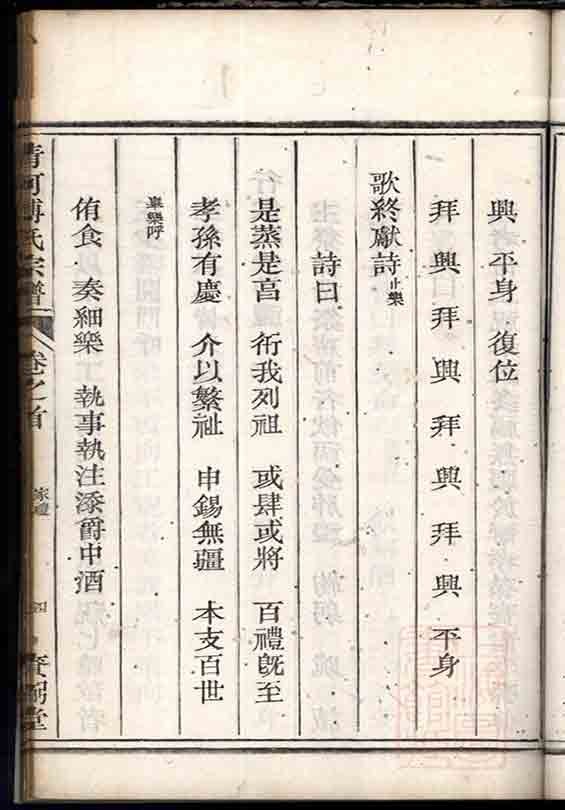 興 平身 復位
拜 興 拜 興 拜 興 拜 興 平身
歌終獻詩 止樂
詩曰
是蒸是亯 衎我列祖 或肆或將 百禮旣至
孝孫有慶 介以繁祉 申錫無疆 本支百世
畢樂呼
侑食 奏細樂 執事執注添爵中酒
清河傅氏宗譜 卷之首 家禮 四 堂